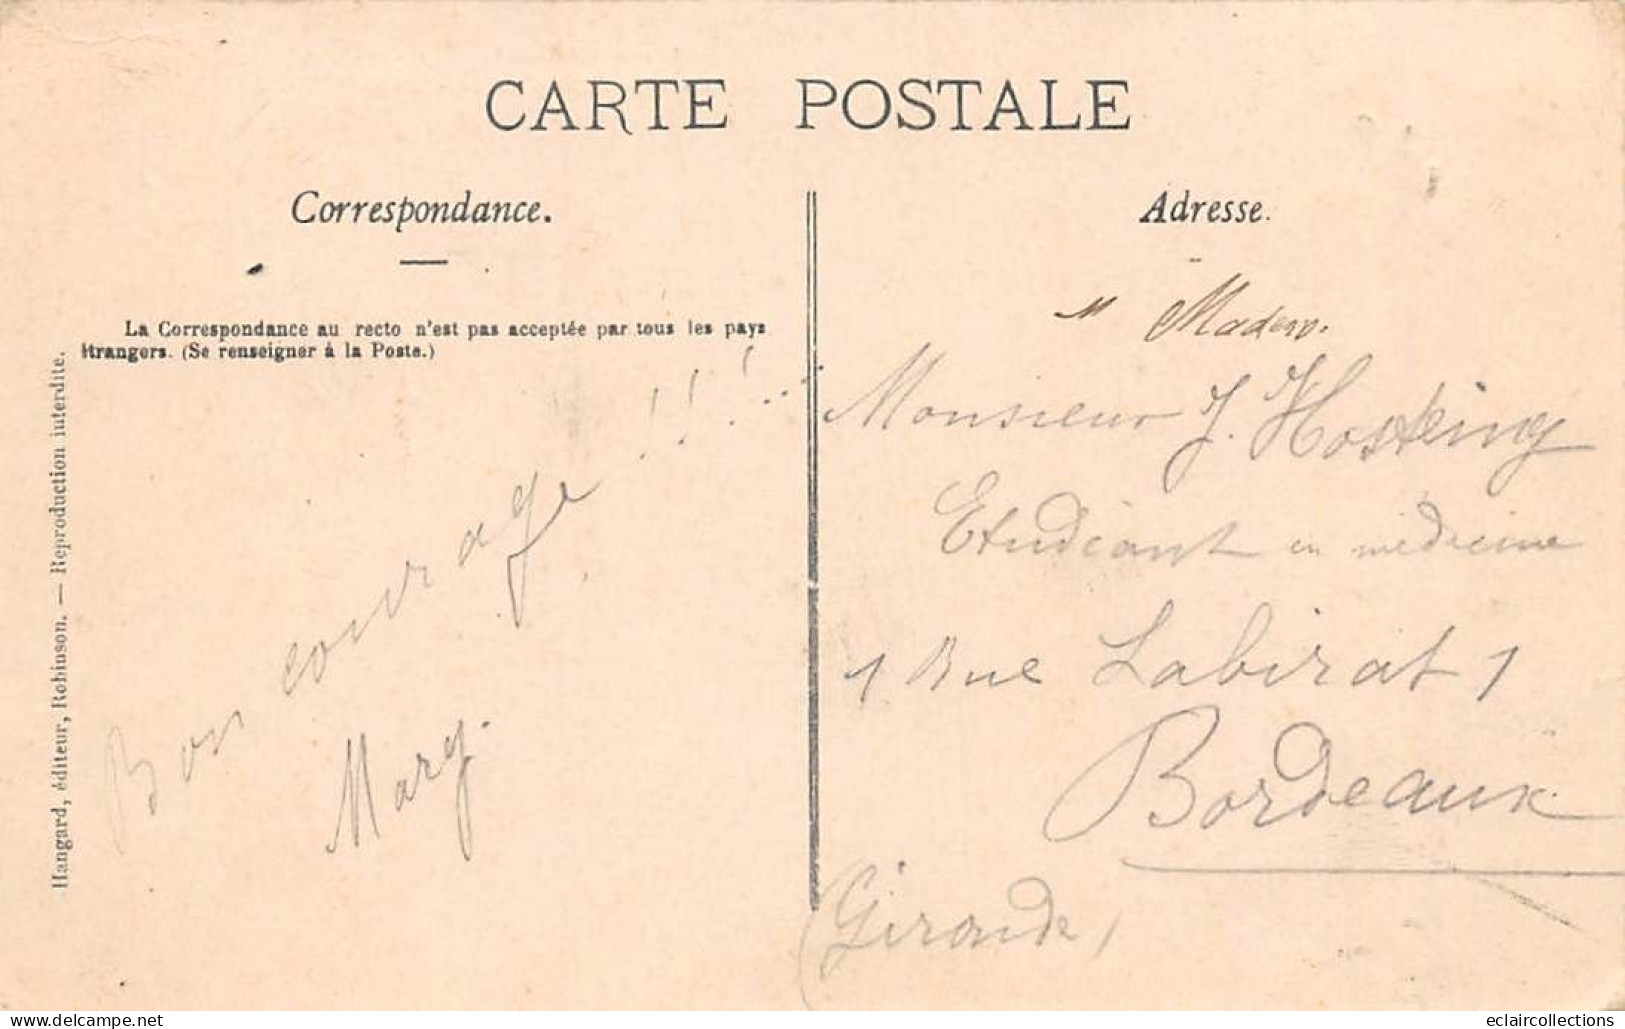 CARTE POSTALE
Correspondance.
La Correspondance au recto n'est pas acceptée par tous les pays
étrangers. (Se renseigner à la Poste.)
Bon courage !!!...
Mary.
Hangard, éditeur, Robinson. — Reproduction interdite.
Adresse.
Monsieur J. Hosteing
Etudiant en médecine
1 Rue Labirat 1
Bordeaux
(Gironde)
eclaircollections
www.delcampe.net